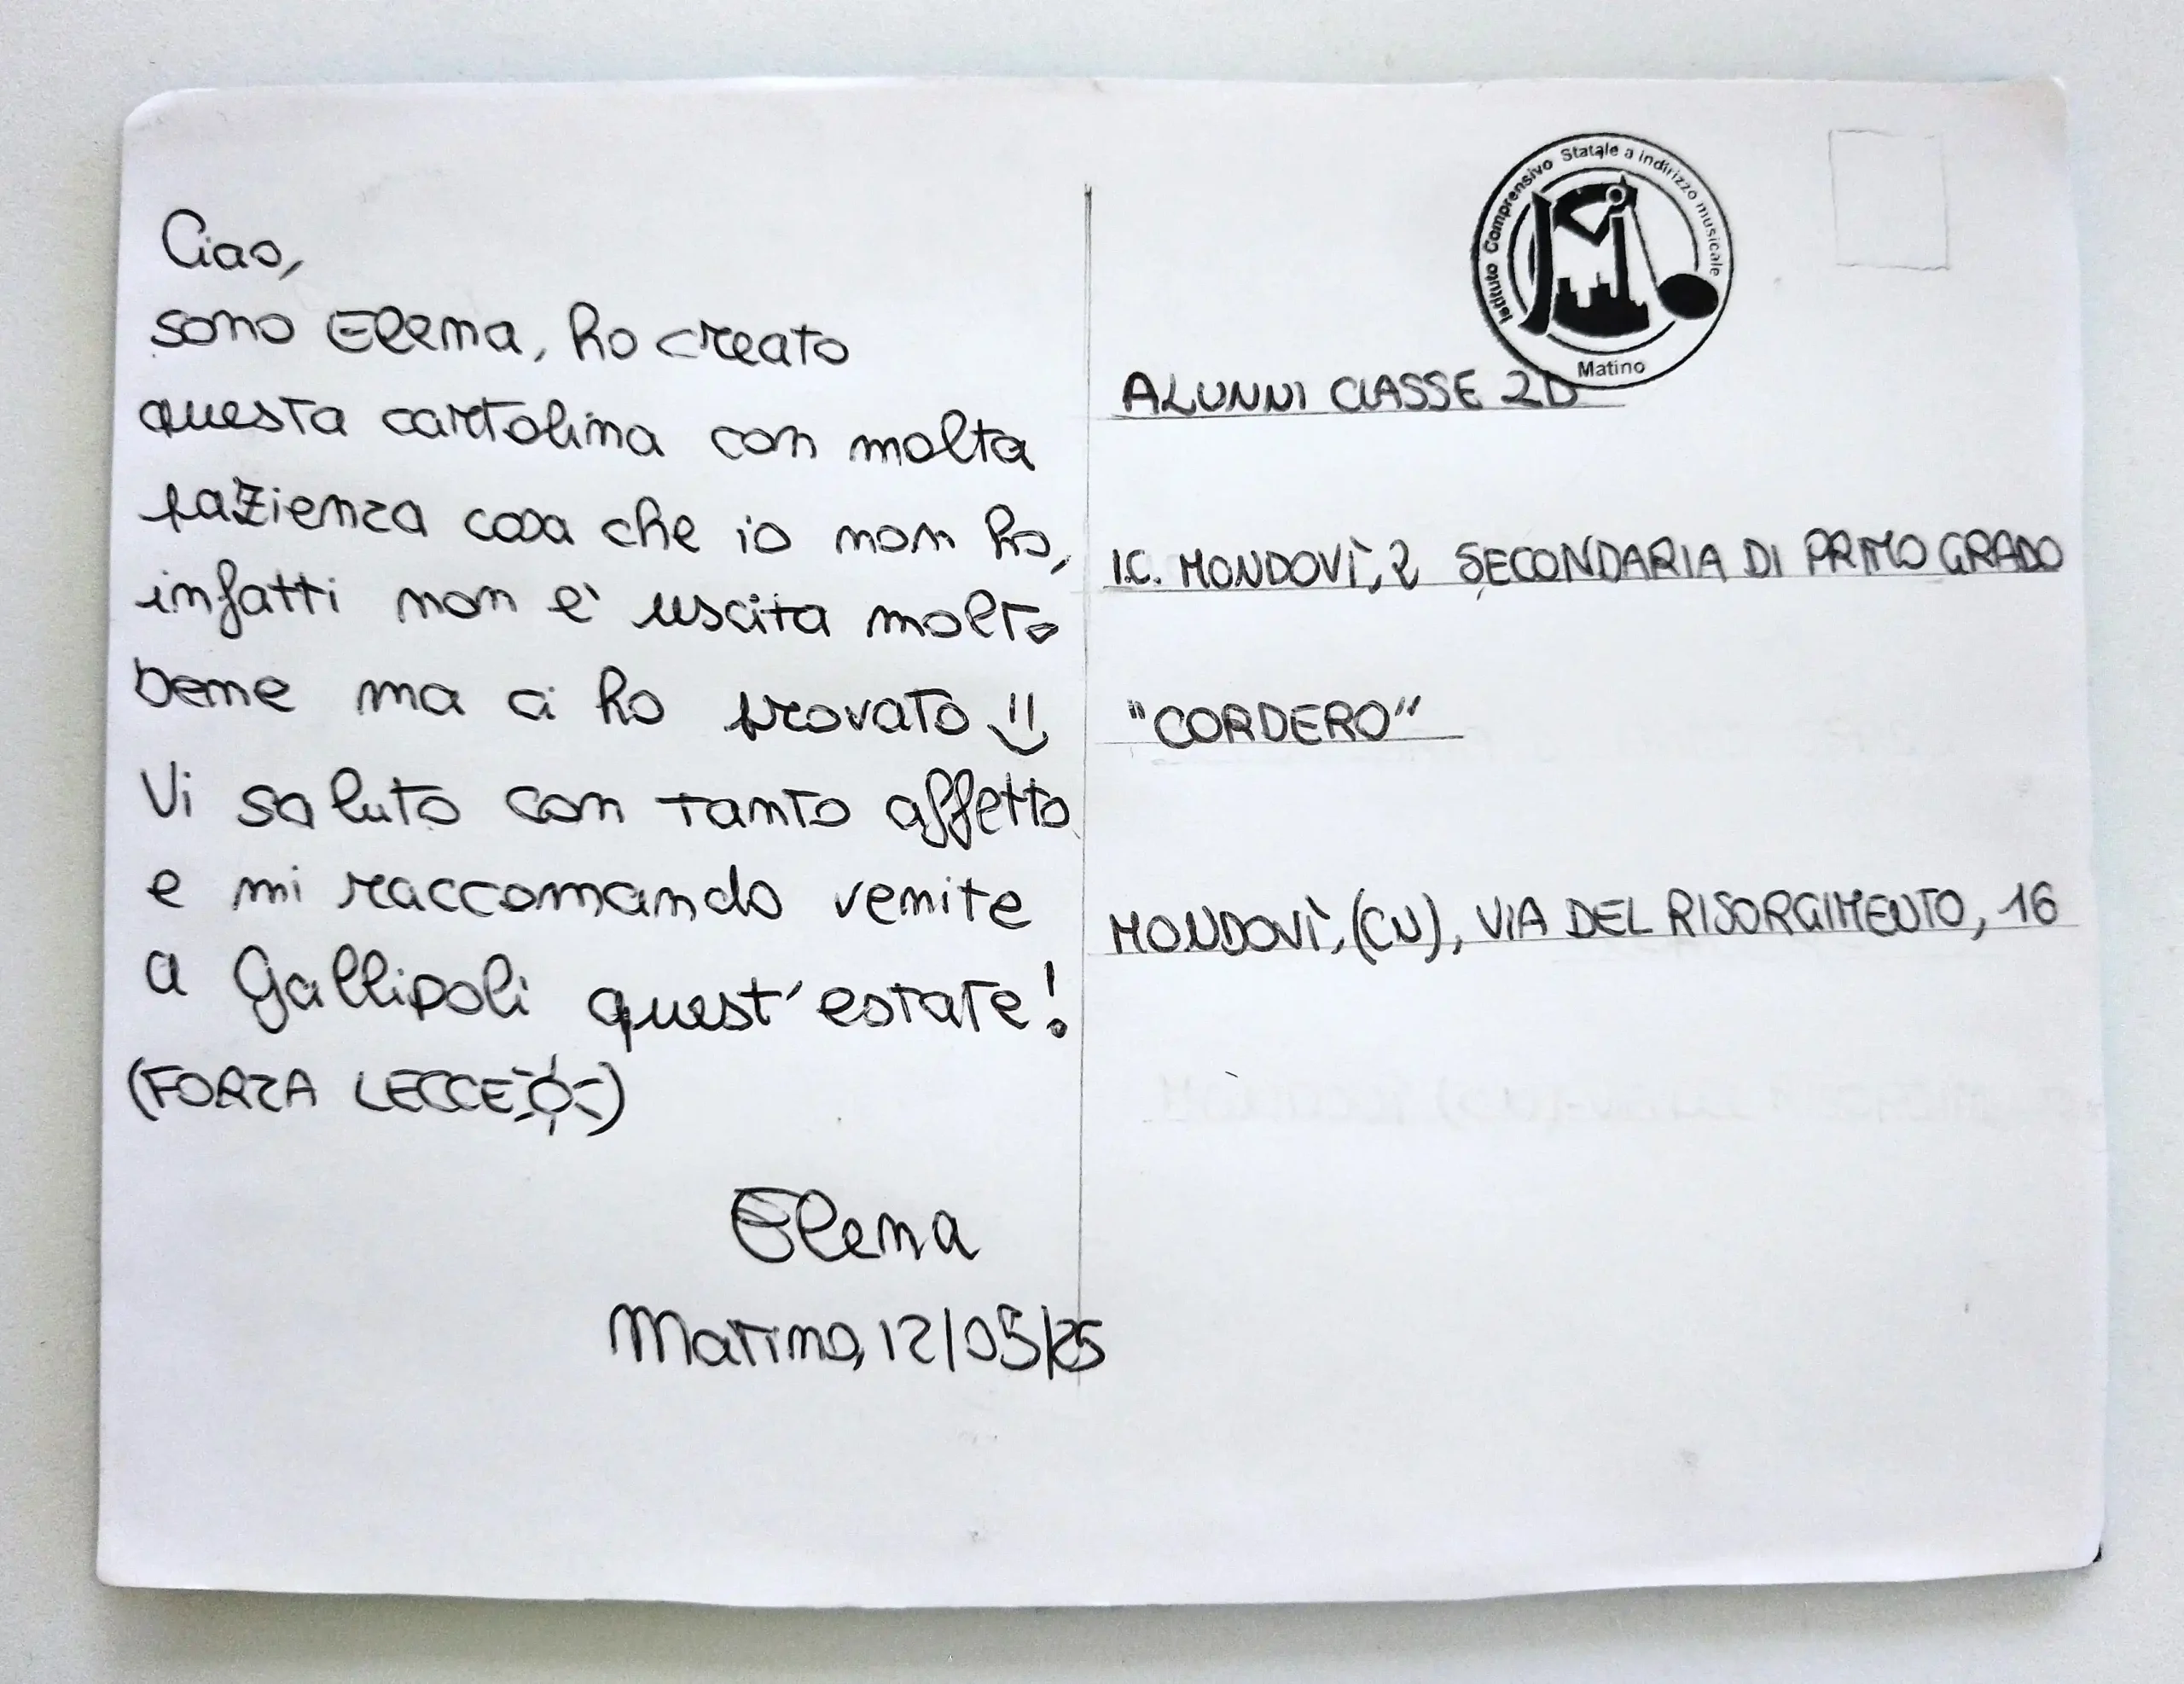 Ciao,
sono Elena, ho creato
questa cartolina con molta
pazienza cosa che io non ho,
infatti non è uscita molto
bene ma ci ho provato
Vi saluto con tanto affetto
e mi raccomando venite
a Gallipoli quest'estate!
(FORZA LECCE)
Elena
Matino, 12/05/25
Istituto Comprensivo Statale a indirizzo musicale
Matino
ALUNNI CLASSE 2D
I.C. MONDOVÌ, 2 SECONDARIA DI PRIMO GRADO
"CORDERO"
MONDOVÌ, (CN), VIA DEL RISORGIMENTO, 16